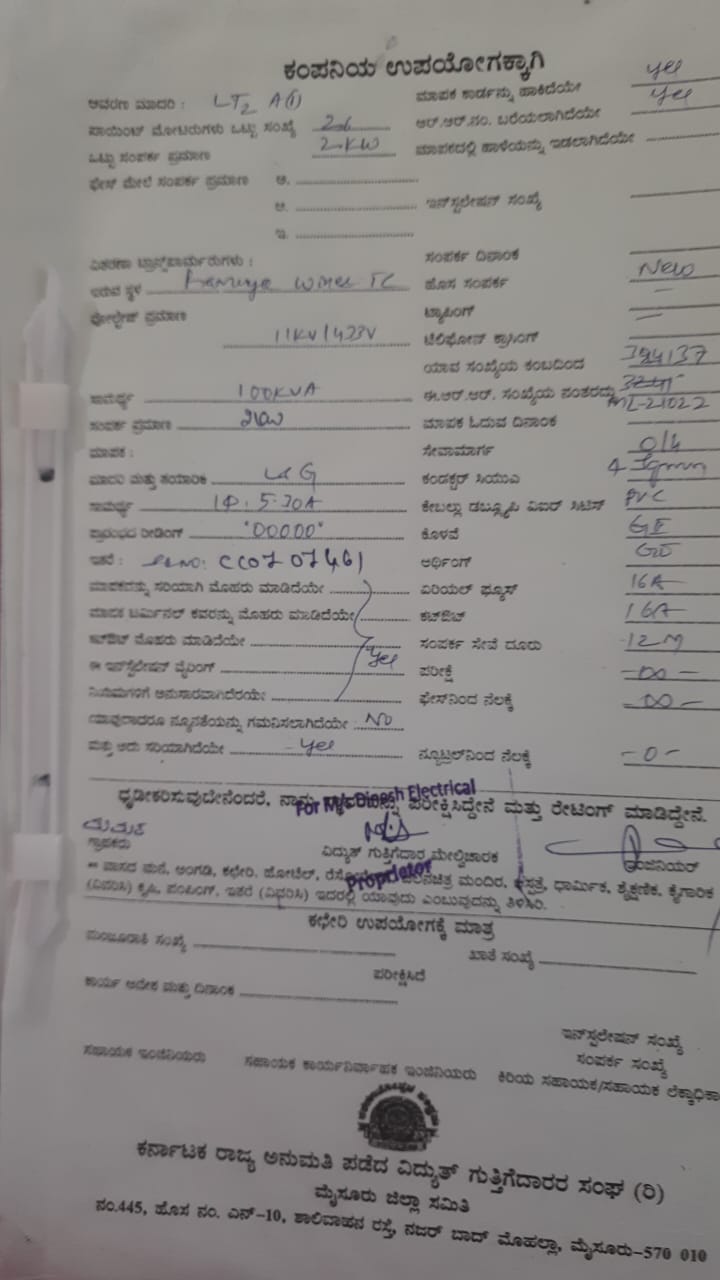 ಕಂಪನಿಯ ಉಪಯೋಗಕ್ಕಾಗಿ
ಆವರಣ ಮಾದರಿ : LT2 A(i) ಮಾಪಕ ಕಾರ್ಡನ್ನು ಹಾಕಿದೆಯೇ yes
ಪಾಯಿಂಟ್ ಮೋಟರುಗಳು ಒಟ್ಟು ಸಂಖ್ಯೆ ಆರ್.ಆರ್.ನಂ. ಬರೆಯಲಾಗಿದೆಯೇ yes
ಒಟ್ಟು ಸಂಪರ್ಕ ಪ್ರಮಾಣ 2-KW ಮಾಪಕದಲ್ಲಿ ಹಾಳೆಯನ್ನು ಇಡಲಾಗಿದೆಯೇ
ಫೇಸ್ ಮೇಲೆ ಸಂಪರ್ಕ ಪ್ರಮಾಣ ಅ.
ಆ. ಇನ್‌ಸ್ಟಲೇಷನ್ ಸಂಖ್ಯೆ
ಇ.
ವಿತರಣಾ ಟ್ರಾನ್ಸ್‌ಫಾರ್ಮರುಗಳು : ಸಂಪರ್ಕ ದಿನಾಂಕ
ಇರುವ ಸ್ಥಳ wines TC ಹೊಸ ಸಂಪರ್ಕ New
ವೋಲ್ಟೇಜ್ ಪ್ರಮಾಣ 11KV/433V ಟ್ಯಾಪಿಂಗ್ –
ಟೆಲಿಫೋನ್ ಕ್ರಾಸಿಂಗ್ –
ಯಾವ ಸಂಖ್ಯೆಯ ಕಂಬದಿಂದ 394137
ಸಾಮರ್ಥ್ಯ 100KVA ಈ.ಆರ್.ಆರ್. ಸಂಖ್ಯೆಯ ನಂತರದ್ದು ML-21022
ಸಂಪರ್ಕ ಪ್ರಮಾಣ 2KW ಮಾಪಕ ಓದುವ ದಿನಾಂಕ
ಮಾಪಕ : ಸೇವಾಮಾರ್ಗ O/H
ಮಾದರಿ ಮತ್ತು ತಯಾರಿಕೆ L&G ಕಂಡಕ್ಟರ್ ಸಿಯುಎ 4 Sqmm
ಸಾಮರ್ಥ್ಯ 1Φ, 5-30A ಕೇಬಲ್ಲು ಡಬ್ಲ್ಯೂಪಿ ವಿಐಆರ್ ಸಿಟಿಎಸ್ PVC
ಪ್ರಾರಂಭದ ರೀಡಿಂಗ್ "00000" ಕೊಳವೆ GI
ಇತರೆ : CC0707461 ಅರ್ಥಿಂಗ್ GI
ಮಾಪಕವನ್ನು ಸರಿಯಾಗಿ ಮೊಹರು ಮಾಡಿದೆಯೇ ಏರಿಯಲ್ ಫ್ಯೂಸ್ 16A
ಮಾಪಕ ಟರ್ಮಿನಲ್ ಕವರನ್ನು ಮೊಹರು ಮಾಡಿದೆಯೇ ಕಟ್‌ಔಟ್ 16A
ಕಟ್‌ಔಟ್ ಮೊಹರು ಮಾಡಿದೆಯೇ yes ಸಂಪರ್ಕ ಸೇವೆ ದೂರು 12M
ಈ ಇನ್‌ಸ್ಟಲೇಷನ್ ವೈರಿಂಗ್ ಪರೀಕ್ಷೆ –∞–
ನಿಯಮಗಳಿಗೆ ಅನುಸಾರವಾಗಿದೆಯೇ ಫೇಸ್‌ನಿಂದ ನೆಲಕ್ಕೆ ∞–
ಯಾವುದಾದರೂ ನ್ಯೂನತೆಯನ್ನು ಗಮನಿಸಲಾಗಿದೆಯೇ : NO
ಮತ್ತು ಅದು ಸರಿಯಾಗಿದೆಯೇ yes ನ್ಯೂಟ್ರಲ್‌ನಿಂದ ನೆಲಕ್ಕೆ –0–
ಧೃಡೀಕರಿಸುವುದೇನೆಂದರೆ, ನಾವು ಪರೀಕ್ಷಿಸಿದ್ದೇನೆ ಮತ್ತು ರೇಟಿಂಗ್ ಮಾಡಿದ್ದೇನೆ.
For M/s Dinesh Electrical
ಗ್ರಾಹಕರು ವಿದ್ಯುತ್ ಗುತ್ತಿಗೆದಾರ ಮೇಲ್ವಿಚಾರಕ ಇಂಜಿನಿಯರ್
Proprietor
** ವಾಸದ ಮನೆ, ಅಂಗಡಿ, ಕಛೇರಿ, ಹೋಟೆಲ್, ಚಲನಚಿತ್ರ ಮಂದಿರ, ಧಾರ್ಮಿಕ, ಶೈಕ್ಷಣಿಕ, ಕೈಗಾರಿಕ
(ವಿವರಿಸಿ) ಕೃಷಿ, ಪಂಪಿಂಗ್, ಇತರೆ (ವಿವರಿಸಿ) ಇದರಲ್ಲಿ ಯಾವುದು ಎಂಬುವುದನ್ನು ತಿಳಿಸಿರಿ.
ಕಛೇರಿ ಉಪಯೋಗಕ್ಕೆ ಮಾತ್ರ
ಮಂಜೂರಾತಿ ಸಂಖ್ಯೆ ಖಾತೆ ಸಂಖ್ಯೆ
ಪರೀಕ್ಷಿಸಿದೆ
ಕಾರ್ಯ ಆದೇಶ ಮತ್ತು ದಿನಾಂಕ
ಇನ್‌ಸ್ಟಲೇಷನ್ ಸಂಖ್ಯೆ
ಸಂಪರ್ಕ ಸಂಖ್ಯೆ
ಸಹಾಯಕ ಇಂಜಿನಿಯರು ಸಹಾಯಕ ಕಾರ್ಯನಿರ್ವಾಹಕ ಇಂಜಿನಿಯರು ಕಿರಿಯ ಸಹಾಯಕ/ಸಹಾಯಕ ಲೆಕ್ಕಾಧಿಕಾ
ಕರ್ನಾಟಕ ರಾಜ್ಯ ಅನುಮತಿ ಪಡೆದ ವಿದ್ಯುತ್ ಗುತ್ತಿಗೆದಾರರ ಸಂಘ (ರಿ)
ಮೈಸೂರು ಜಿಲ್ಲಾ ಸಮಿತಿ
ನಂ.445, ಹೊಸ ನಂ. ಎನ್-10, ಶಾಲಿವಾಹನ ರಸ್ತೆ, ನಜರ್ ಬಾದ್ ಮೊಹಲ್ಲಾ, ಮೈಸೂರು-570 010